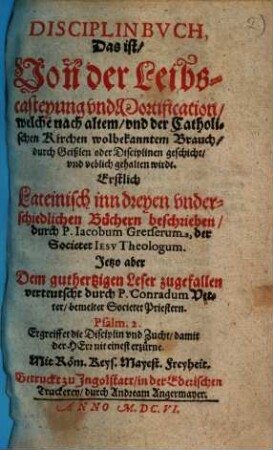 DISCIPLINBVCH,
Das ist/
Von der Leibs-
casteyung vnd Mortification/
welche nach altem/ vnd der Catholi-
schen Kirchen wolbekanntem Brauch/
durch Geißlen oder Disciplinen geschicht/
vnd veblich gehalten wirdt.
Erstlich
Lateinisch inn dreyen vnder-
schiedlichen Büchern beschrieben/
durch P. Iacobum Gretserum, der
Societet IESV Theologum.
Jetzo aber
Dem guthertzigen Leser zugefallen
verteutscht durch P. Conradum Vet-
ter/ bemelter Societet Priestern.
Psalm. 2.
Ergreiffet die Disciplin vnd Zucht/ damit
der HErr nit einest erzürne.
Mit Röm. Keys. Mayest. Freyheit.
Getruckt zu Ingolstatt/ in der Ederischen
Truckerey/ durch Andream Angermayer.
ANNO M.DC.VI.